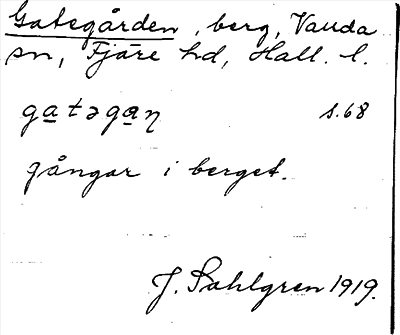 Gategården, berg, Vauda
sn, Fjäre hd, Hall. l.
gatəgaɳ s. 68
gångar i berget.
J. Sahlgren 1919.